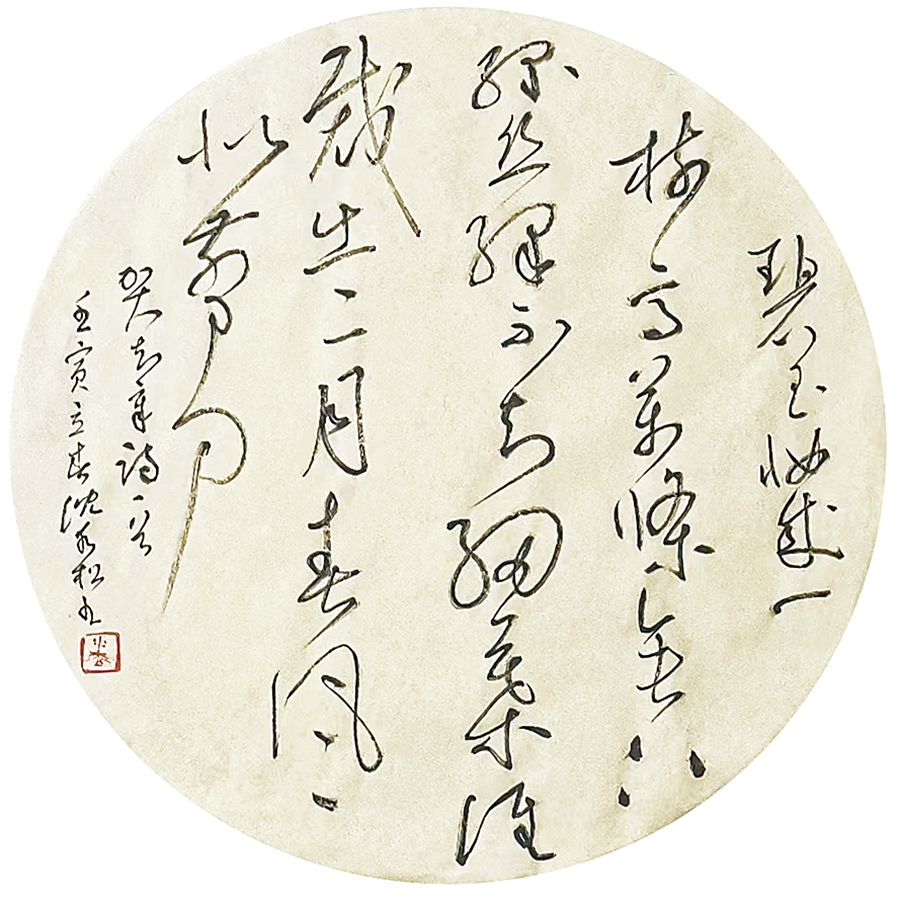 碧玉妝成一
樹高萬條垂下
綠絲絛不知細葉誰
裁出二月春風
似剪刀
賀知章詩一首
壬寅立春沈永松书